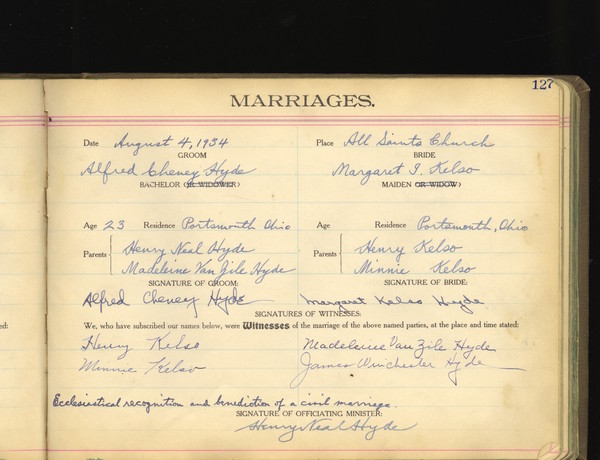 127
MARRIAGES.
Date August 4, 1934 Place All Saints Church
GROOM BRIDE
Alfred Cheney Hyde Margaret I. Kelso
BACHELOR (OR WIDOWER) MAIDEN (OR WIDOW)
Age 23 Residence Portsmouth Ohio Age Residence Portsmouth, Ohio
Parents Henry Neal Hyde Parents Henry Kelso
Madeleine Van Zile Hyde Minnie Kelso
SIGNATURE OF GROOM: SIGNATURE OF BRIDE:
Alfred Cheney Hyde Margaret Kelso Hyde
SIGNATURES OF WITNESSES:
ed: We, who have subscribed our names below, were Witnesses of the marriage of the above named parties, at the place and time stated:
Henry Kelso Madeleine Van Zile Hyde
Minnie Kelso James Winchester Hyde
Ecclesiastical recognition and benediction of a civil marriage.
SIGNATURE OF OFFICIATING MINISTER:
Henry Neal Hyde